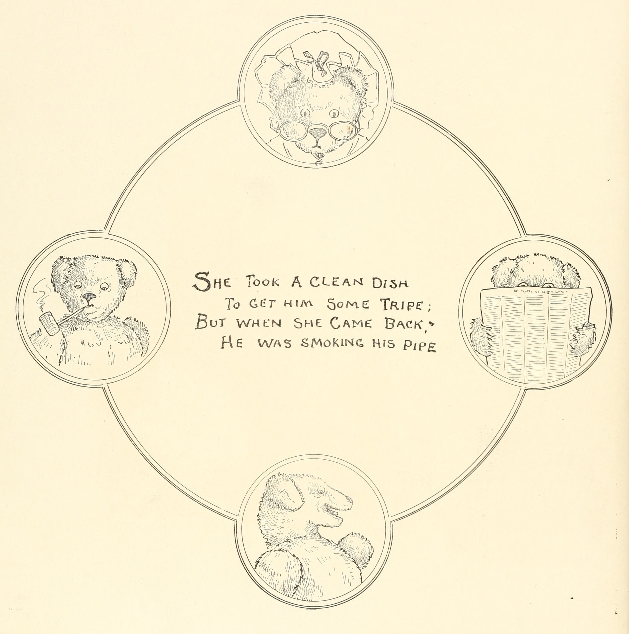 She Took A Clean Dish
To Get Him Some Tripe;
But When She Came Back,
He Was Smoking His Pipe